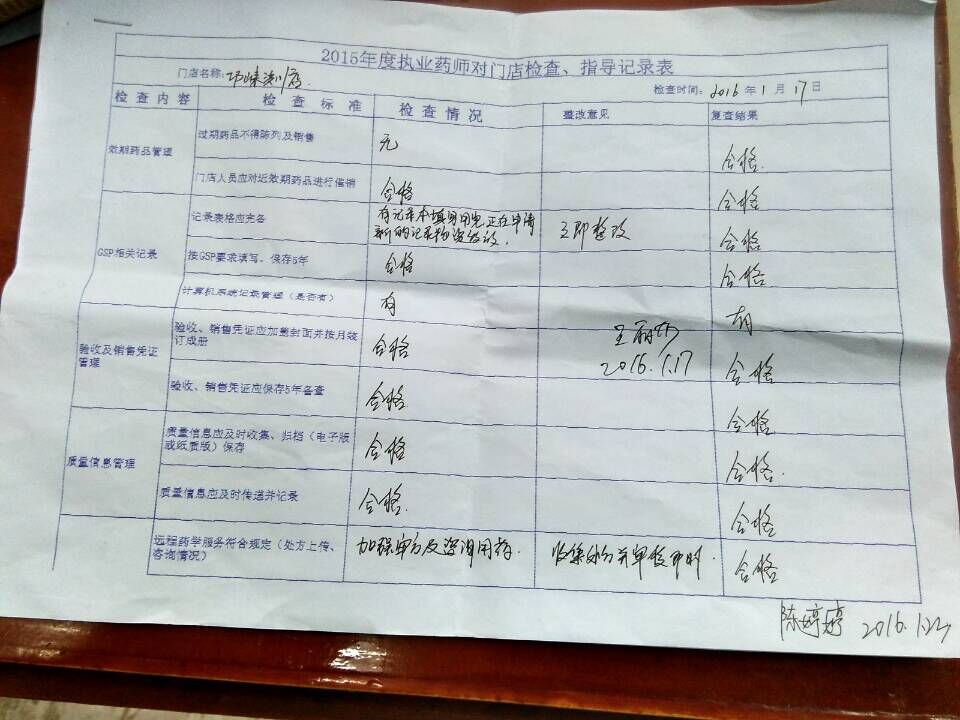 2015年度执业药师对门店检查、指导记录表
门店名称: 邛崃 店 检查时间: 2016 年 1 月 17 日
检查内容 检查标准 检查情况 整改意见 复查结果
效期药品管理 过期药品不得陈列及销售 无 合格.
门店人员应对近效期药品进行催销 合格 合格
GSP相关记录 记录表格应完备 有记录本填写用完,正在申请 立即整改 合格
新的记录物资
按GSP要求填写、保存5年 合格 合格
计算机系统记录管理(是否有) 有 有
验收及销售凭证
管理
验收、销售凭证应加盖封面并按月装
订成册
合格 合格
王丽
2016.1.17
验收、销售凭证应保存5年备查 合格 合格
质量信息管理
质量信息应及时收集、归档(电子版
或纸质版)保存
合格 合格.
质量信息应及时传递并记录 合格. 合格
远程药学服务符合规定(处方上传、
咨询情况)
加强审方及咨询用药. 收集处方并审核 合格
陈婷婷 2016.1.22